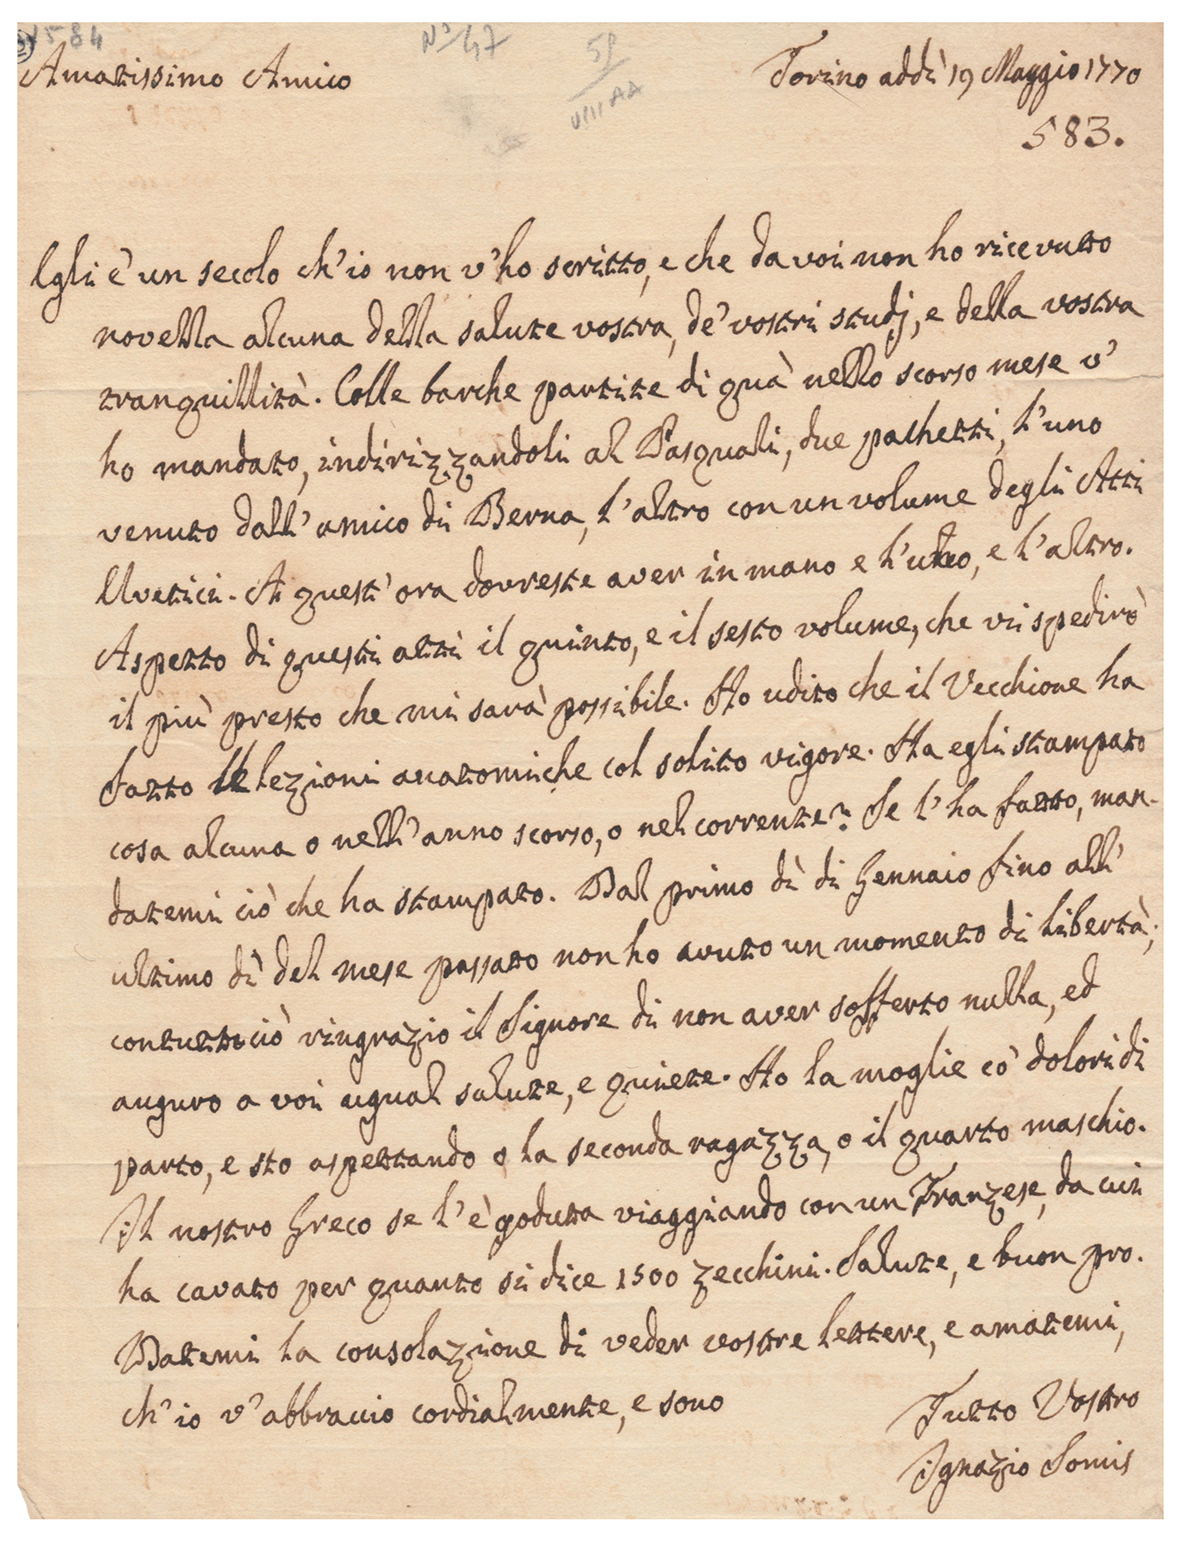 1584 N° 47 59
VIII AA
Amatissimo Amico Torino addì 19 Maggio 1770
583.
Egli è un secolo ch'io non v'ho scritto, e che da voi non ho ricevuto
novella alcuna della salute vostra, de' vostri studj, e della vostra
tranquillità. Colle barche partite di quà nello scorso mese v'
ho mandato, indirizzandoli al Pasquali, due pachetti, l'uno
venuto dall'amico di Berna, l'altro con un volume degli Atti
Elvetici. A quest'ora dovreste aver in mano e l'uno, e l'altro.
Aspetto di questi atti il quinto, e il sesto volume, che vi spedirò
il più presto che mi sarà possibile. Ho udito che il Vecchione ha
fatto le lezioni anatomiche col solito vigore. Ha egli stampato
cosa alcuna o nell'anno scorso, o nel corrente? Se l'ha fatto, man-
datemi ciò che ha stampato. Dal primo dì di Gennaio fino all'
ultimo dì del mese passato non ho avuto un momento di libertà;
contuttociò ringrazio il Signore di non aver sofferto nulla, ed
auguro a voi ugual salute, e quiete. Ho la moglie co' dolori di
parto, e sto aspettando o la seconda ragazza, o il quarto maschio.
Il nostro Greco se l'è goduta viaggiando con un Franzese, da cui
ha cavato per quanto si dice 1500 zecchini. Salute, e buon pro.
Datemi la consolazione di veder vostre lettere, e amatemi,
ch'io v'abbraccio cordialmente, e sono
Tutto Vostro
Ignazio Somis